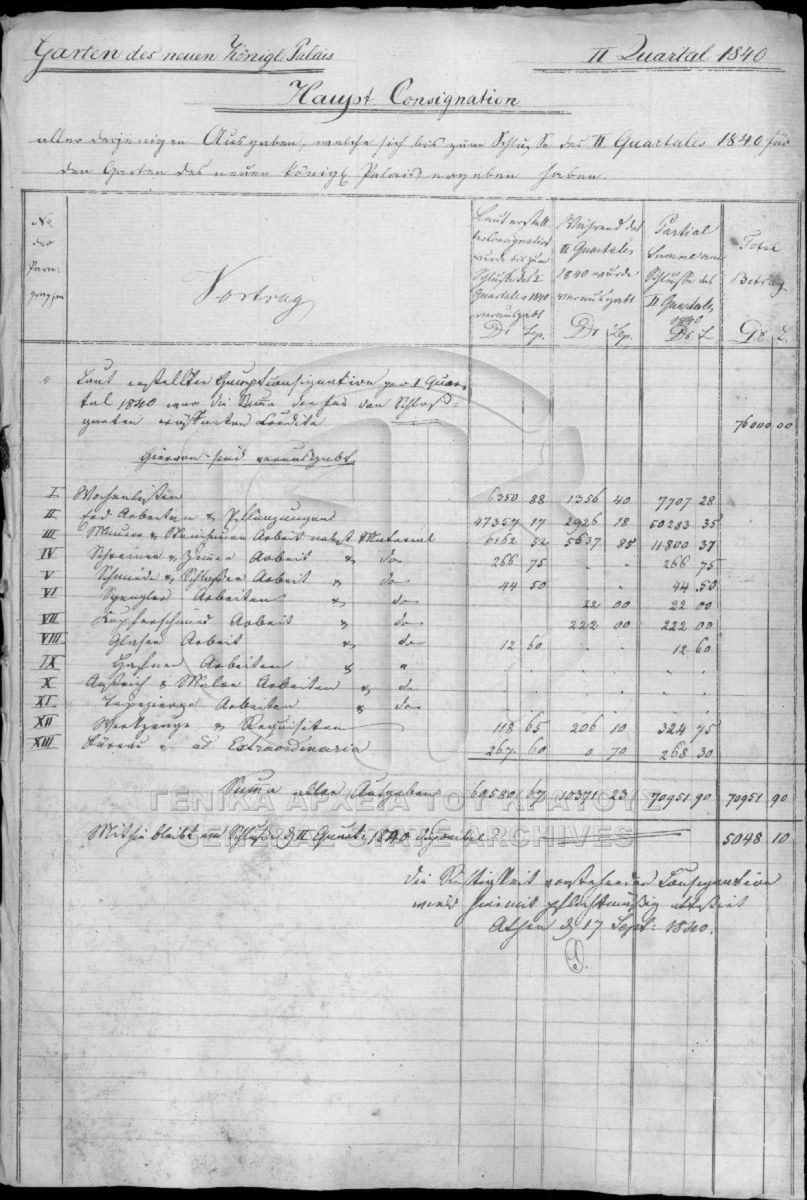 Garten des neuen Königl. Palais
II Quartal 1840
Haupt Consignation
aller derjenigen Ausgaben, welche sich bis zum Schlusse des II Quartales 1840 für
den Garten des neuen Königl Palais ergeben haben.
No
der
Para-
graphen
Vortrag
Laut erstell-
ter Consignation
wurde bis zum
Schlusse des I
Quartales 1840
verausgabt
Dr. Lep.
Während des
II Quartales
1840 wurde
verausgabt
Dr. Lep.
Partial
Summe am
Schlusse des
II Quartales
1840
Dr. L
Total
Betrag
Dr. L.
" Laut erstellter Hauptconsignation per I Quar-
tal 1840 war die Summe der für den Schloß-
garten Credite 76000 00
Hiervon sind verausgabt
I Wochenlisten 6350 88 1356 40 7707 28
II Erd Arbeiten & Pflanzungen 47357 17 2926 18 50283 35
III Maurer & Steinhauer Arbeit nebst Material 6162 52 5637 85 11800 37
IV Schreiner & Zimmer Arbeit & do 266 75 - - 266 75
V Schmiede & Schlosser Arbeit & do 44 50 44 50
VI Spengler Arbeiten & do 22 00 22 00
VII Kupferschmied Arbeit & do 222 00 222 00
VIII Glaser Arbeit & do 12 60 - - 12 60
IX Hafner Arbeiten & "
X Anstrich & Maler Arbeiten & do
XI Tapezierer Arbeiten & do
XII Werkzeuge & Requisiten 118 65 206 10 324 75
XIII Büreau & ad Extraordinaria 267 60 0 70 268 30
Suma aller Ausgaben 60580 67 10371 23 70951 90 70951 90
Mithin bleibt am Schlusse d II Quart. 1840 disponibel 5048 10
Die Richtigkeit vorstehender Consignation
wird hiemit pflichtmäßig attestirt
Athen d 17 Sept. 1840.
ΓΕΝΙΚΑ ΑΡΧΕΙΑ ΤΟΥ ΚΡΑΤΟΥΣ
GENERAL STATE ARCHIVES